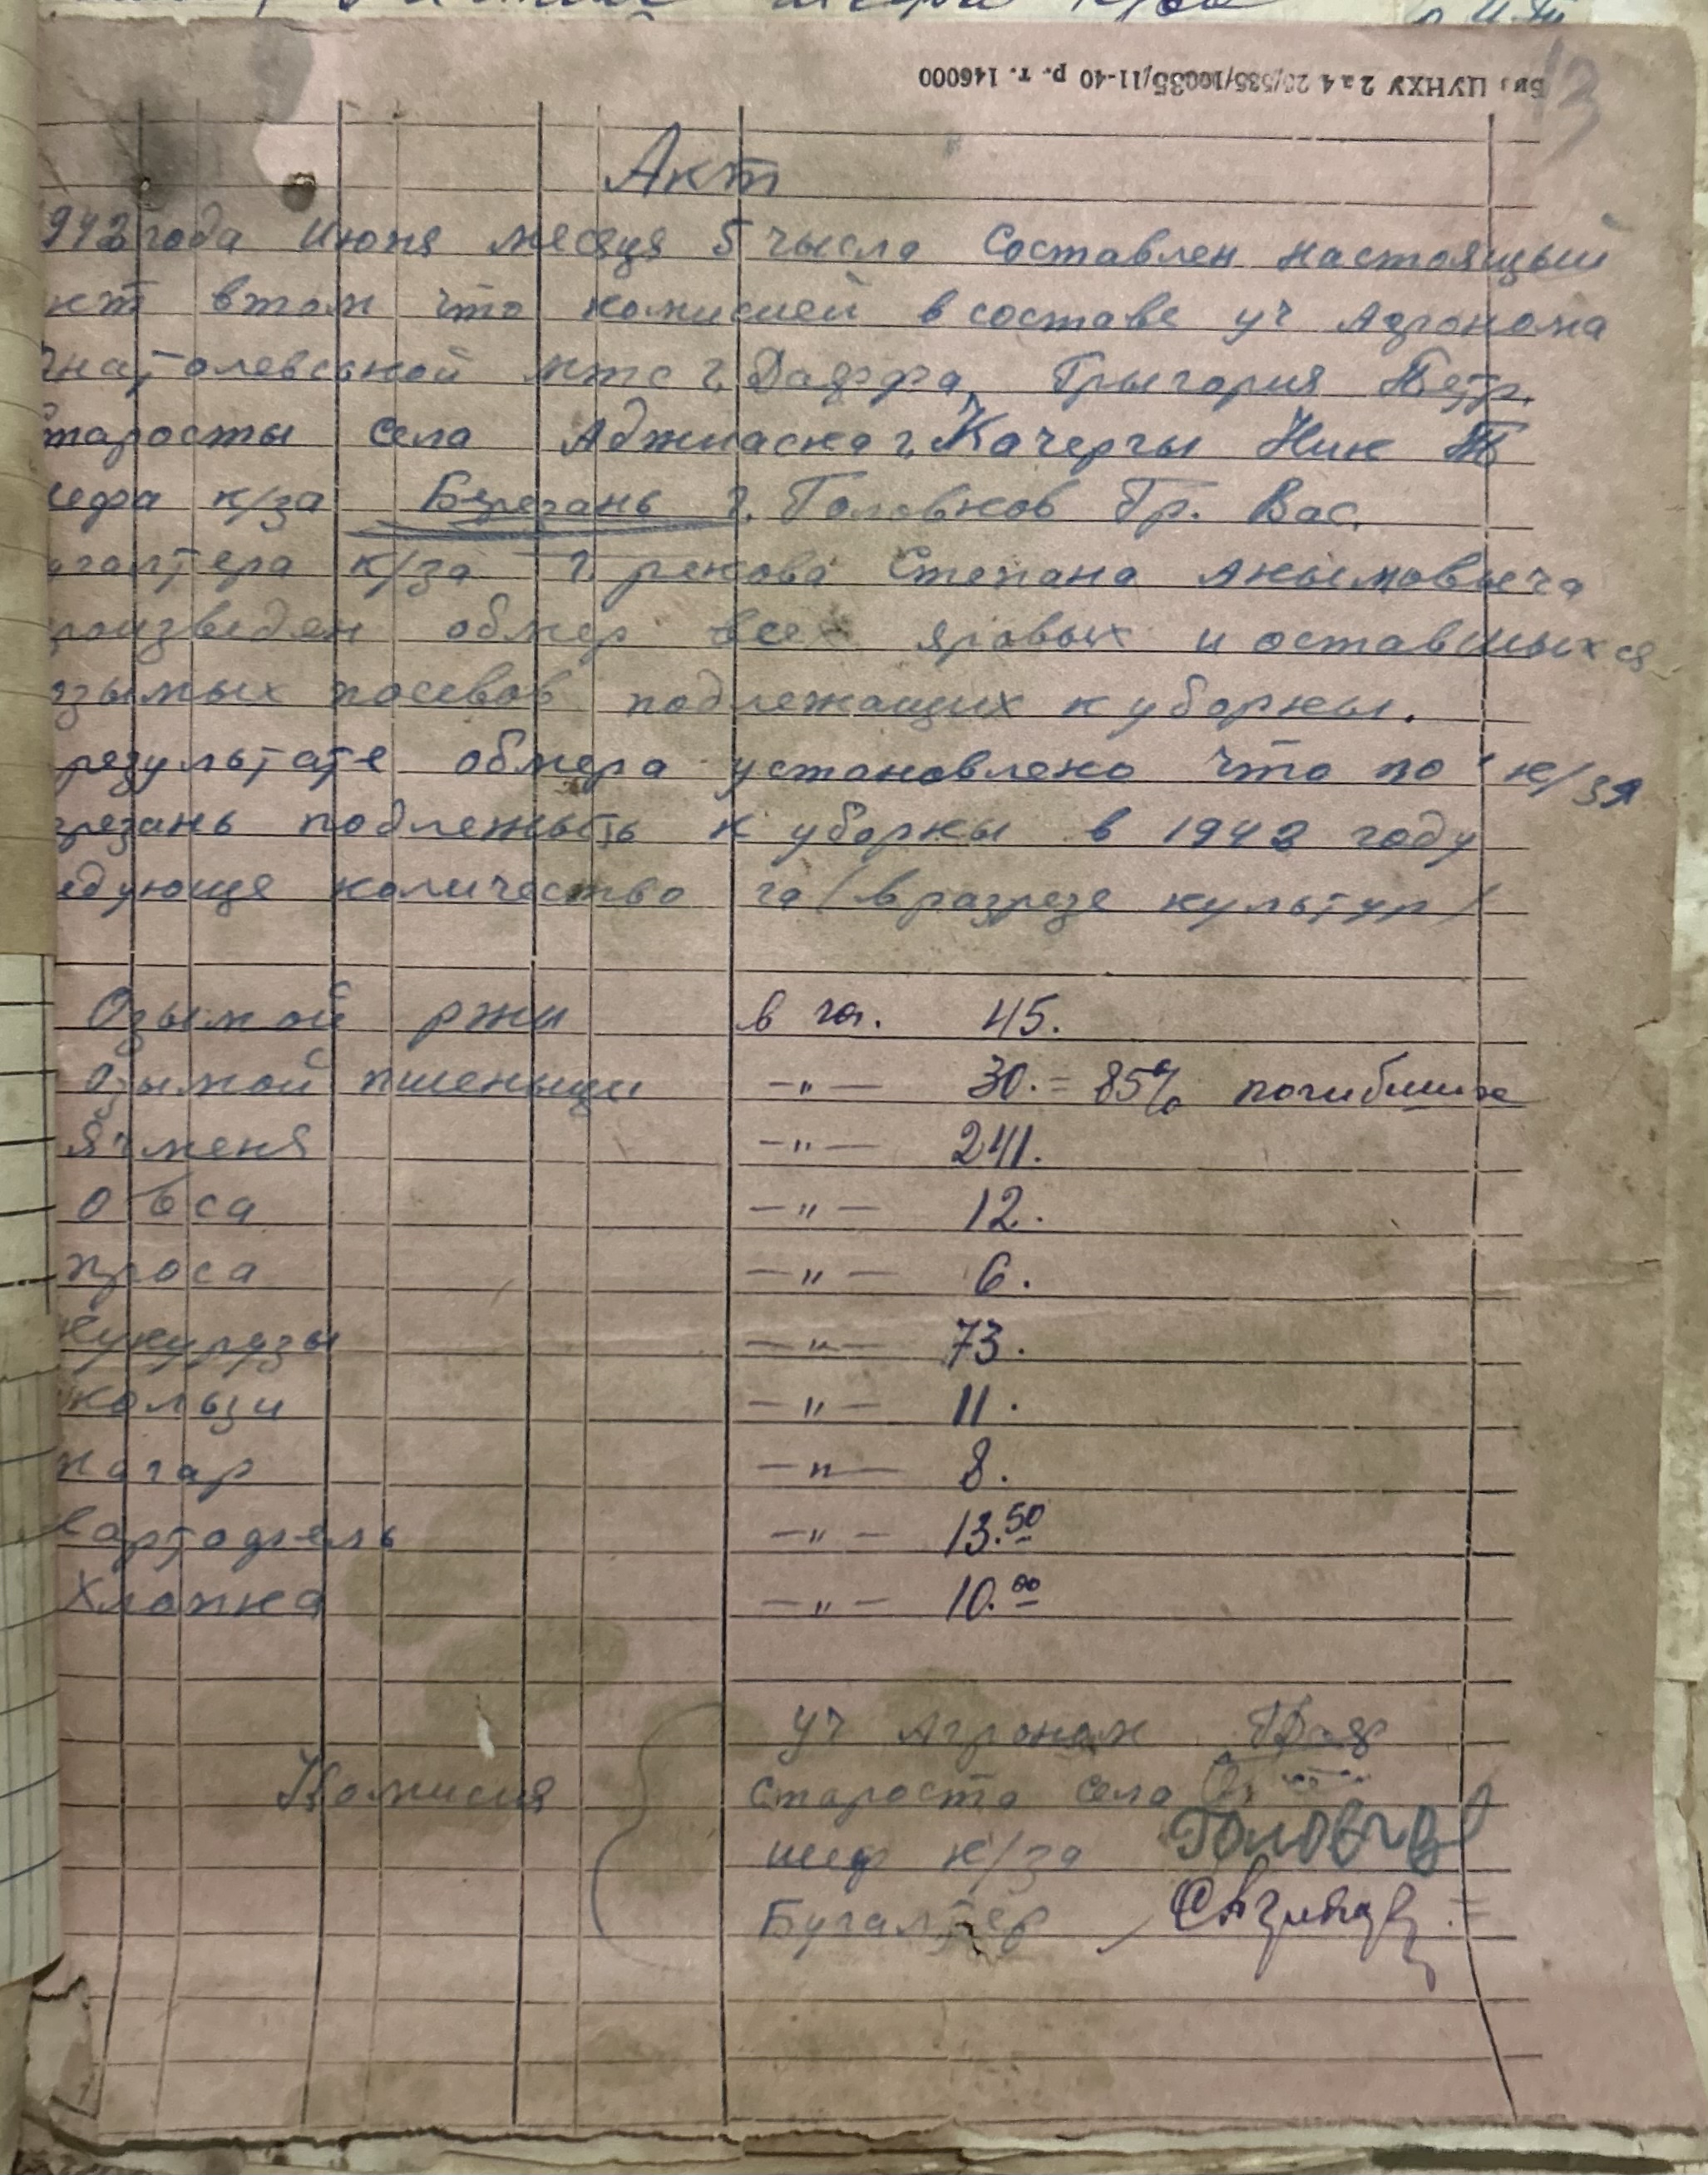 ЦУНХУ
р. т. 146000
13
Акт
942 года Июня месяця 5 чысла Составлен настоящый
кт втом что комисией в составе уч Агронома
натолевской мтс г. Даффа, Грыгория Петр.
таросты села Аджиаска г. Качергы Ник П
ефа к/за Березань г. Головков Гр. Вас.
галтера к/за Степана Акымовыча
роизведен обмер всех яровых и оставшыхся
зымых посевов подлежащих к уборкы.
результате обмера установлено что по к/за
резань подлежыть к уборкы в 1942 году
едующе количество га (в разрезе культур)
Озымой ржи в га. 45.
Озымой пшеныци -„- 30. = 85% погибших
Ячменя -„- 241.
Овса -„- 12.
проса -„- 6.
кукурузы -„- 73.
кользи -„- 11.
могар -„- 8.
картофель -„- 13.50
Хлопка -„- 10.00
Комисия
Уч Агроном
Староста села
шеф к/за Головков
Бугалтер